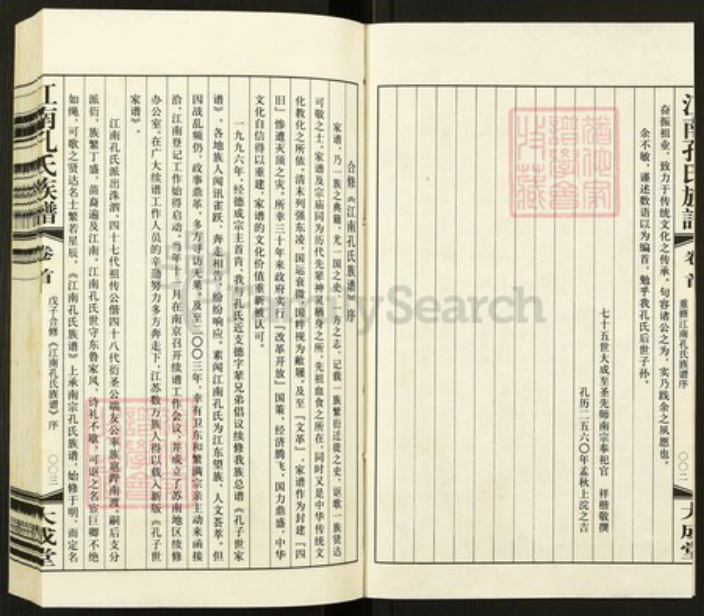 江南孔氏族譜
卷首
重修江南孔氏族譜序
〇〇二
大成堂
奋振祖业，致力于传统文化之传承，句容诸公之为，实乃践余之夙愿也。
余不敏，谨述数语以为编首，勉乎我孔氏后世子孙。
七十五世大成至圣先师南宗奉祀官　祥楷敬撰
孔历二五六〇年孟秋上浣之吉
合修《江南孔氏族谱》序
家谱，乃一族之典籍，尤一国之史、一方之志，记载一族繁衍迁徙之史，讴歌一族贤达
可敬之士。家谱及宗庙同为历代先辈神灵栖身之所，先祖血食之所在，同时又是中华传统文
化教化之所依。清末列强东凌，国运衰微，国粹视为敝屣。及至「文革」，家谱作为封建「四
旧」惨遭灭顶之灾。所幸三十年来政府实行「改革开放」国策，经济腾飞，国力鼎盛，中华
文化自信得以重建，家谱的文化价值重新被认可。
一九九六年，经德成宗主首肯，我与孔氏近支德字辈兄弟倡议续修我族总谱《孔子世家
谱》。各地族人闻讯雀跃，奔走相告，纷纷响应。素闻江南孔氏为江东望族，人文荟萃，但
因战乱频仍，政事鼎革，多方寻访无果。及至二〇〇三年，幸有卫东和繁满宗亲主动来函接
洽，江南登记工作始得启动。当年十一月在南京召开续谱工作会议，并成立了苏南地区续修
办公室。在广大续谱工作人员的辛勤努力多方奔走下，江苏数万族人得以载入新版《孔子世
家谱》。
江南孔氏派出洙泗，四十七代祖传公偕四十八代衍圣公端友公率族扈跸南渡，嗣后支分
派衍，族繁丁盛，苗裔遍及江南。江南孔氏世守东鲁家风，诗礼不辍，可讴之名宦巨卿不绝
如绳，可歌之贤达名士繁若星辰。《江南孔氏族谱》上承南宗孔氏族谱，始修于明，而定名
江南孔氏族譜
卷首
戊子合修《江南孔氏族谱》序
〇〇三
大成堂